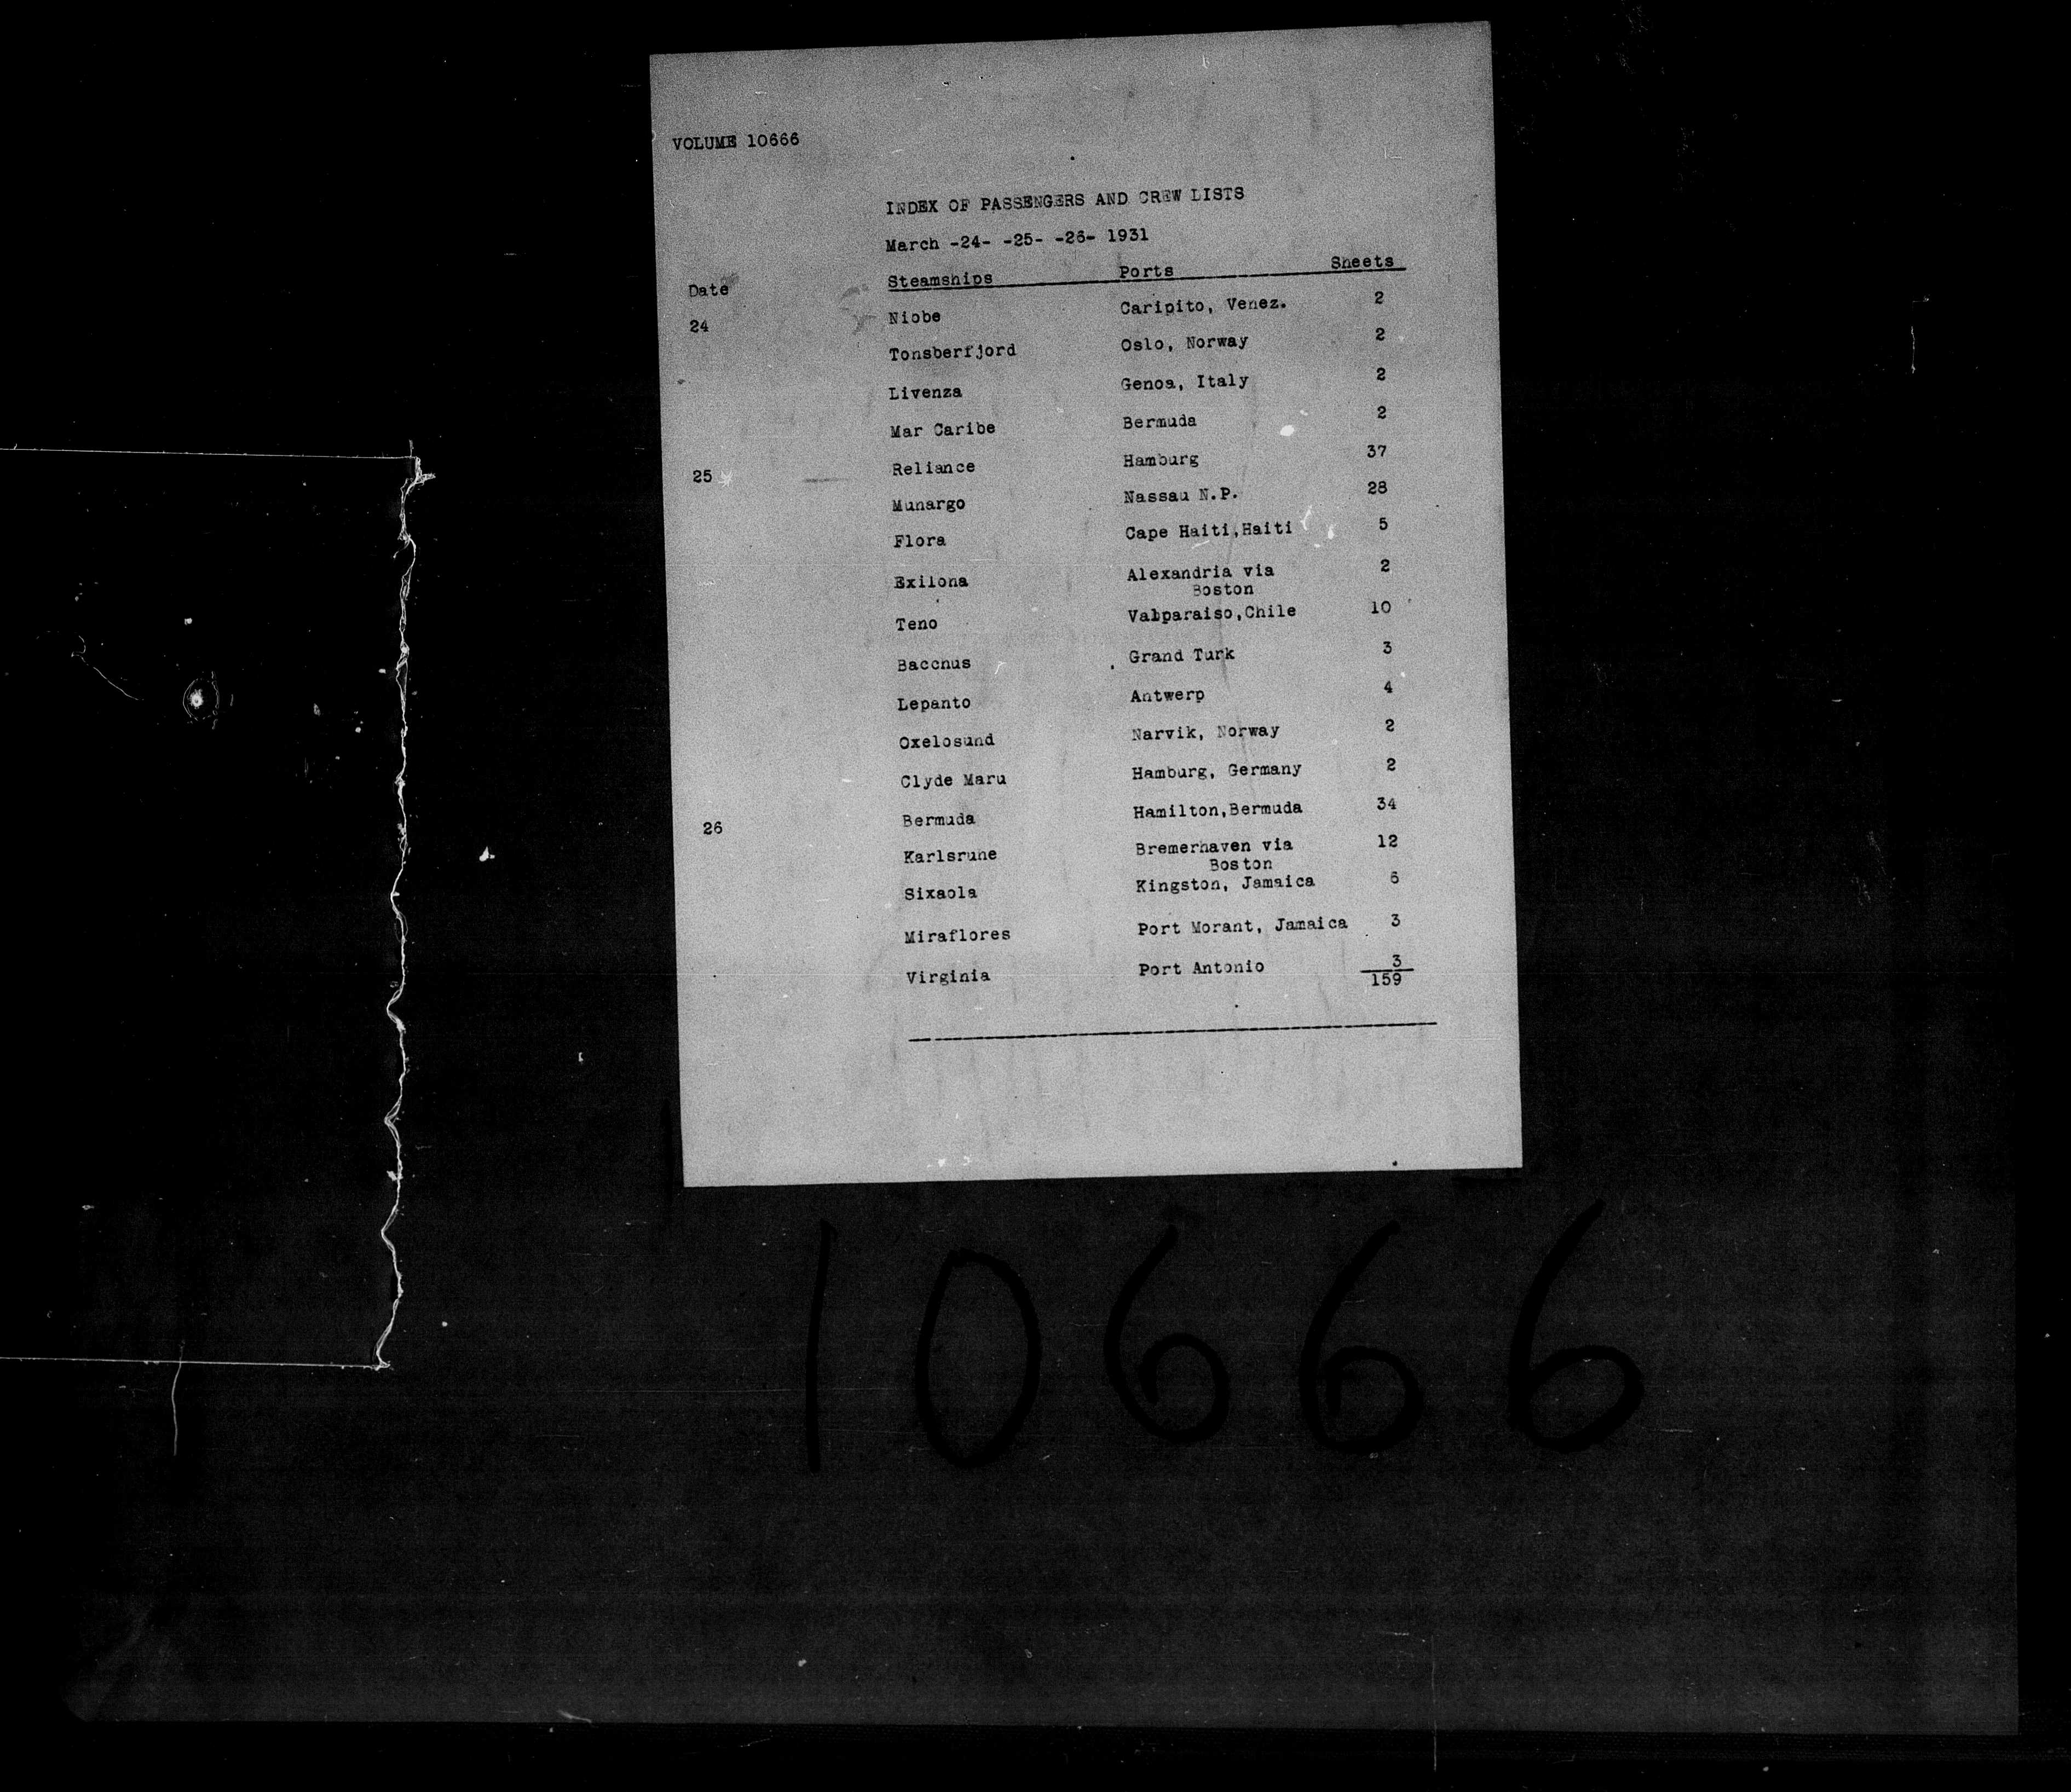 VOLUME 10666
INDEX OF PASSENGERS AND CREW LISTS
March -24- -25- -26- 1931
Date Steamships Ports Sheets
24 Niobe Caripito, Venez. 2
Tonsberfjord Oslo, Norway 2
Livenza Genoa, Italy 2
Mar Caribe Bermuda 2
25 Reliance Hamburg 37
Munargo Nassau N.P. 28
Flora Cape Haiti,Haiti 5
Exilona Alexandria via 2
Boston
Teno Valparaiso,Chile 10
Bacchus Grand Turk 3
Lepanto Antwerp 4
Oxelosund Narvik, Norway 2
Clyde Maru Hamburg, Germany 2
26 Bermuda Hamilton,Bermuda 34
Karlsruhe Bremerhaven via 12
Boston
Sixaola Kingston, Jamaica 6
Miraflores Port Morant, Jamaica 3
Virginia Port Antonio 3
159
10666